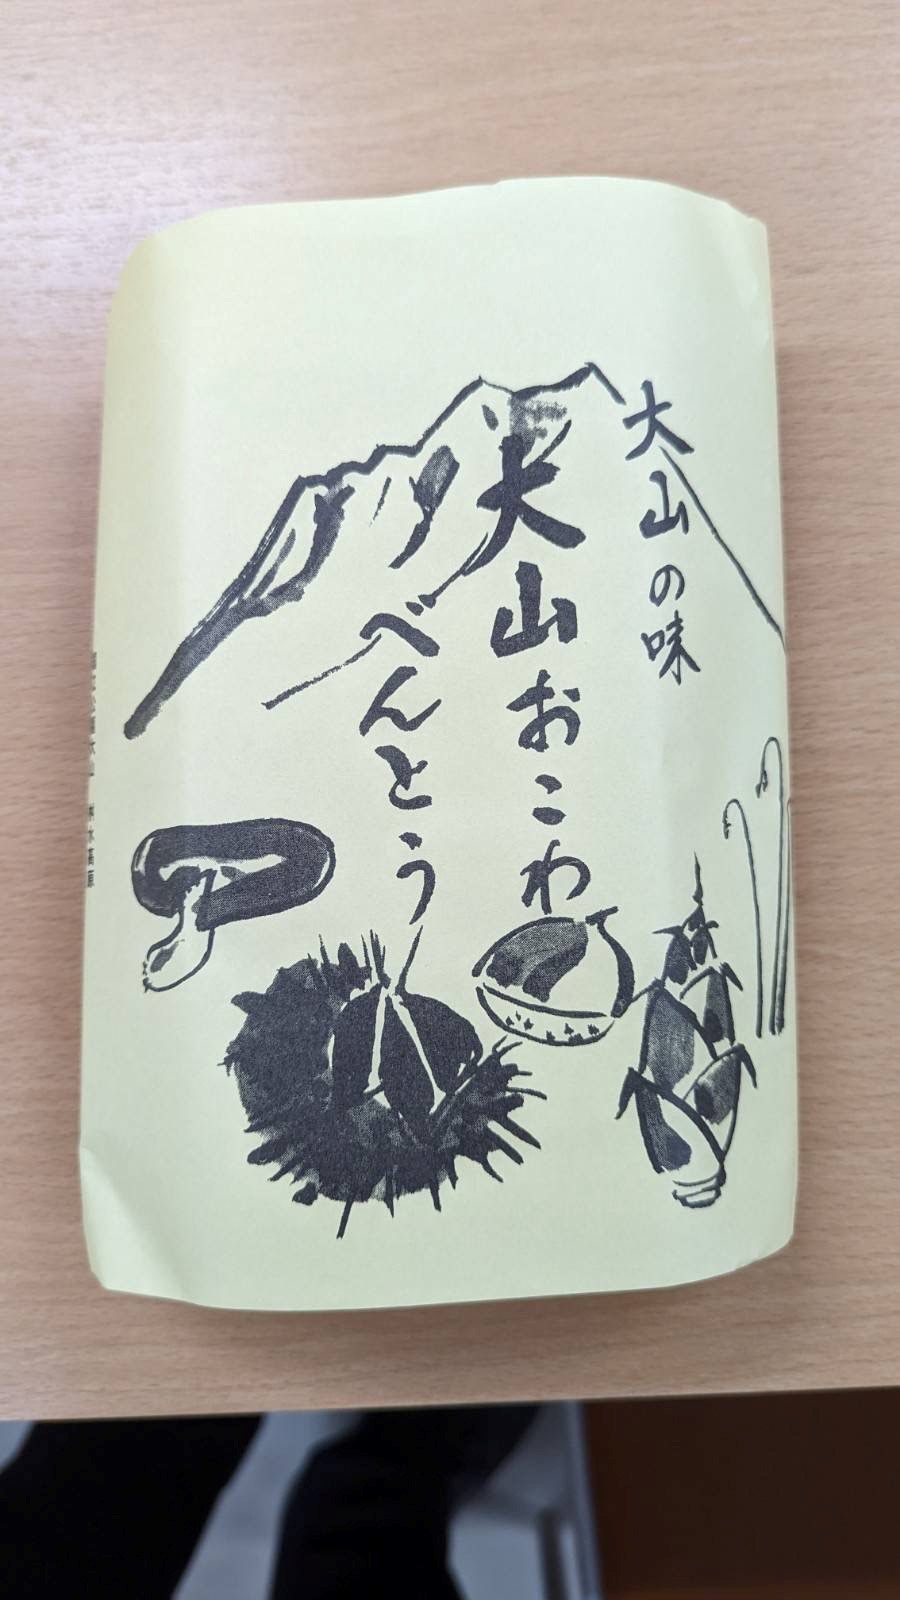 大山の味
大山おこわ
べんとう